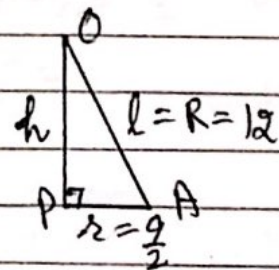 O
h l = R = 12
P A
r = 9/2